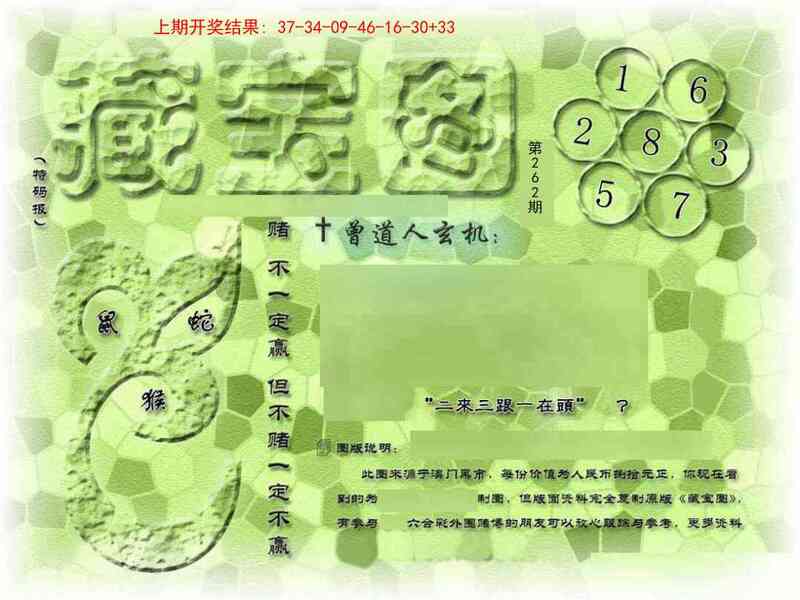 上期开奖结果: 37-34-09-46-16-30+33
藏宝图
(特码报)
第262期
1
6
2
8
3
5
7
鼠
蛇
猴
赌不一定赢但不赌一定不赢
十曾道人玄机:
"二來三跟一在頭" ?
图版说明:
此图来源于澳门黑市,每份价值为人民币捌拾元正,你现在看
到的为 制图,但版面资料完全复制原版《藏宝图》,
有参与 六合彩外围赌博的朋友可以放心跟踪与参考,更多资料